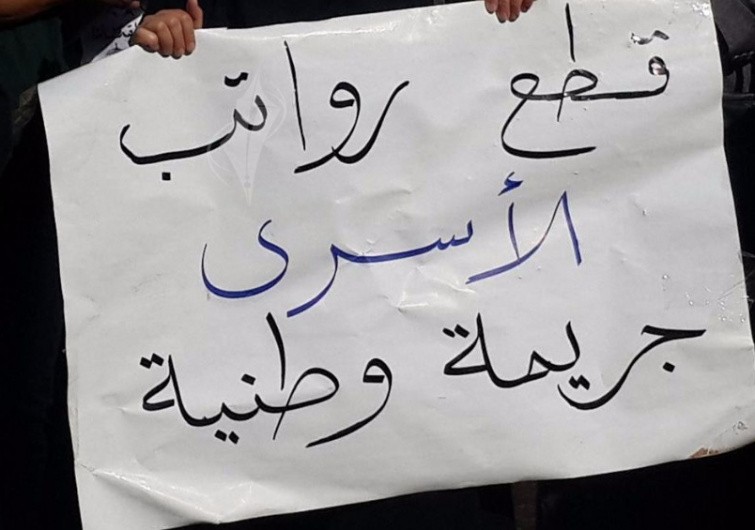 قطع رواتب
الأسرى
جريمة وطنية